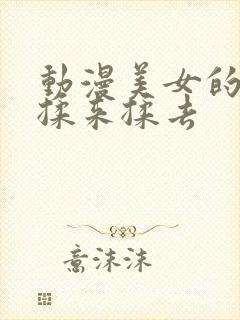 動漫美女的
揉来揉去
意沫沫